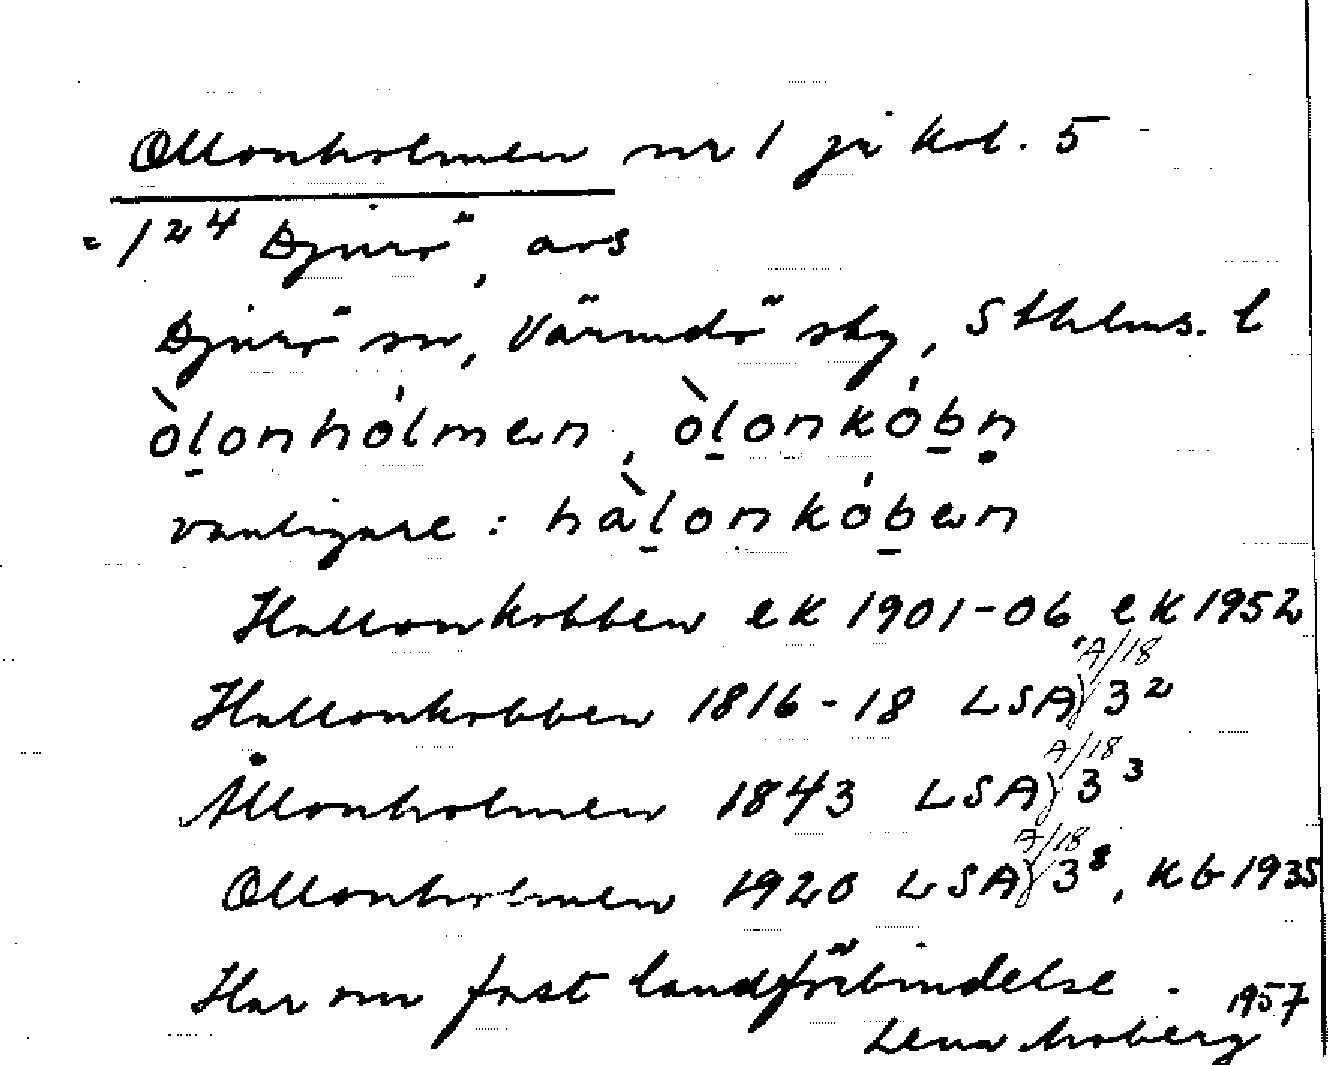 Ollonholmen nr 1 på kol. 5
= 1²⁴ Djurö, avs
Djurö sn, Värmdö skg, Sthlms. l
òlonhólmen, òlonkóbn
vanligare: hàlonkóben
Hallonkobben ek 1901-06 ek 1952
Hallonkobben 1816-18 LSA A/18 3²
Ållonholmen 1843 LSA A/18 3³
Ollonholmen 1920 LSA A/18 3⁸, kb 1935
Har nu fast landförbindelse.
Lena Moberg 1957